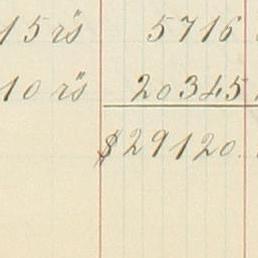 15 rs 5716
10 rs 20345
$29120.